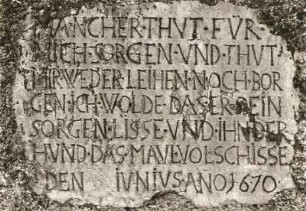 MANCHER·THVT·FVR·
MICH·SORGEN·VND·THVT·
MIR WEDER LEIHEN·NOCH·BOR
GEN·ICH·WOLDE·DAS·ER·SEIN
SORGEN·LISSE·VND·IHN·DER
HVND·DAS·MAVL·VOL·SCHISSE
DEN IVNIVS·ANO 1670·